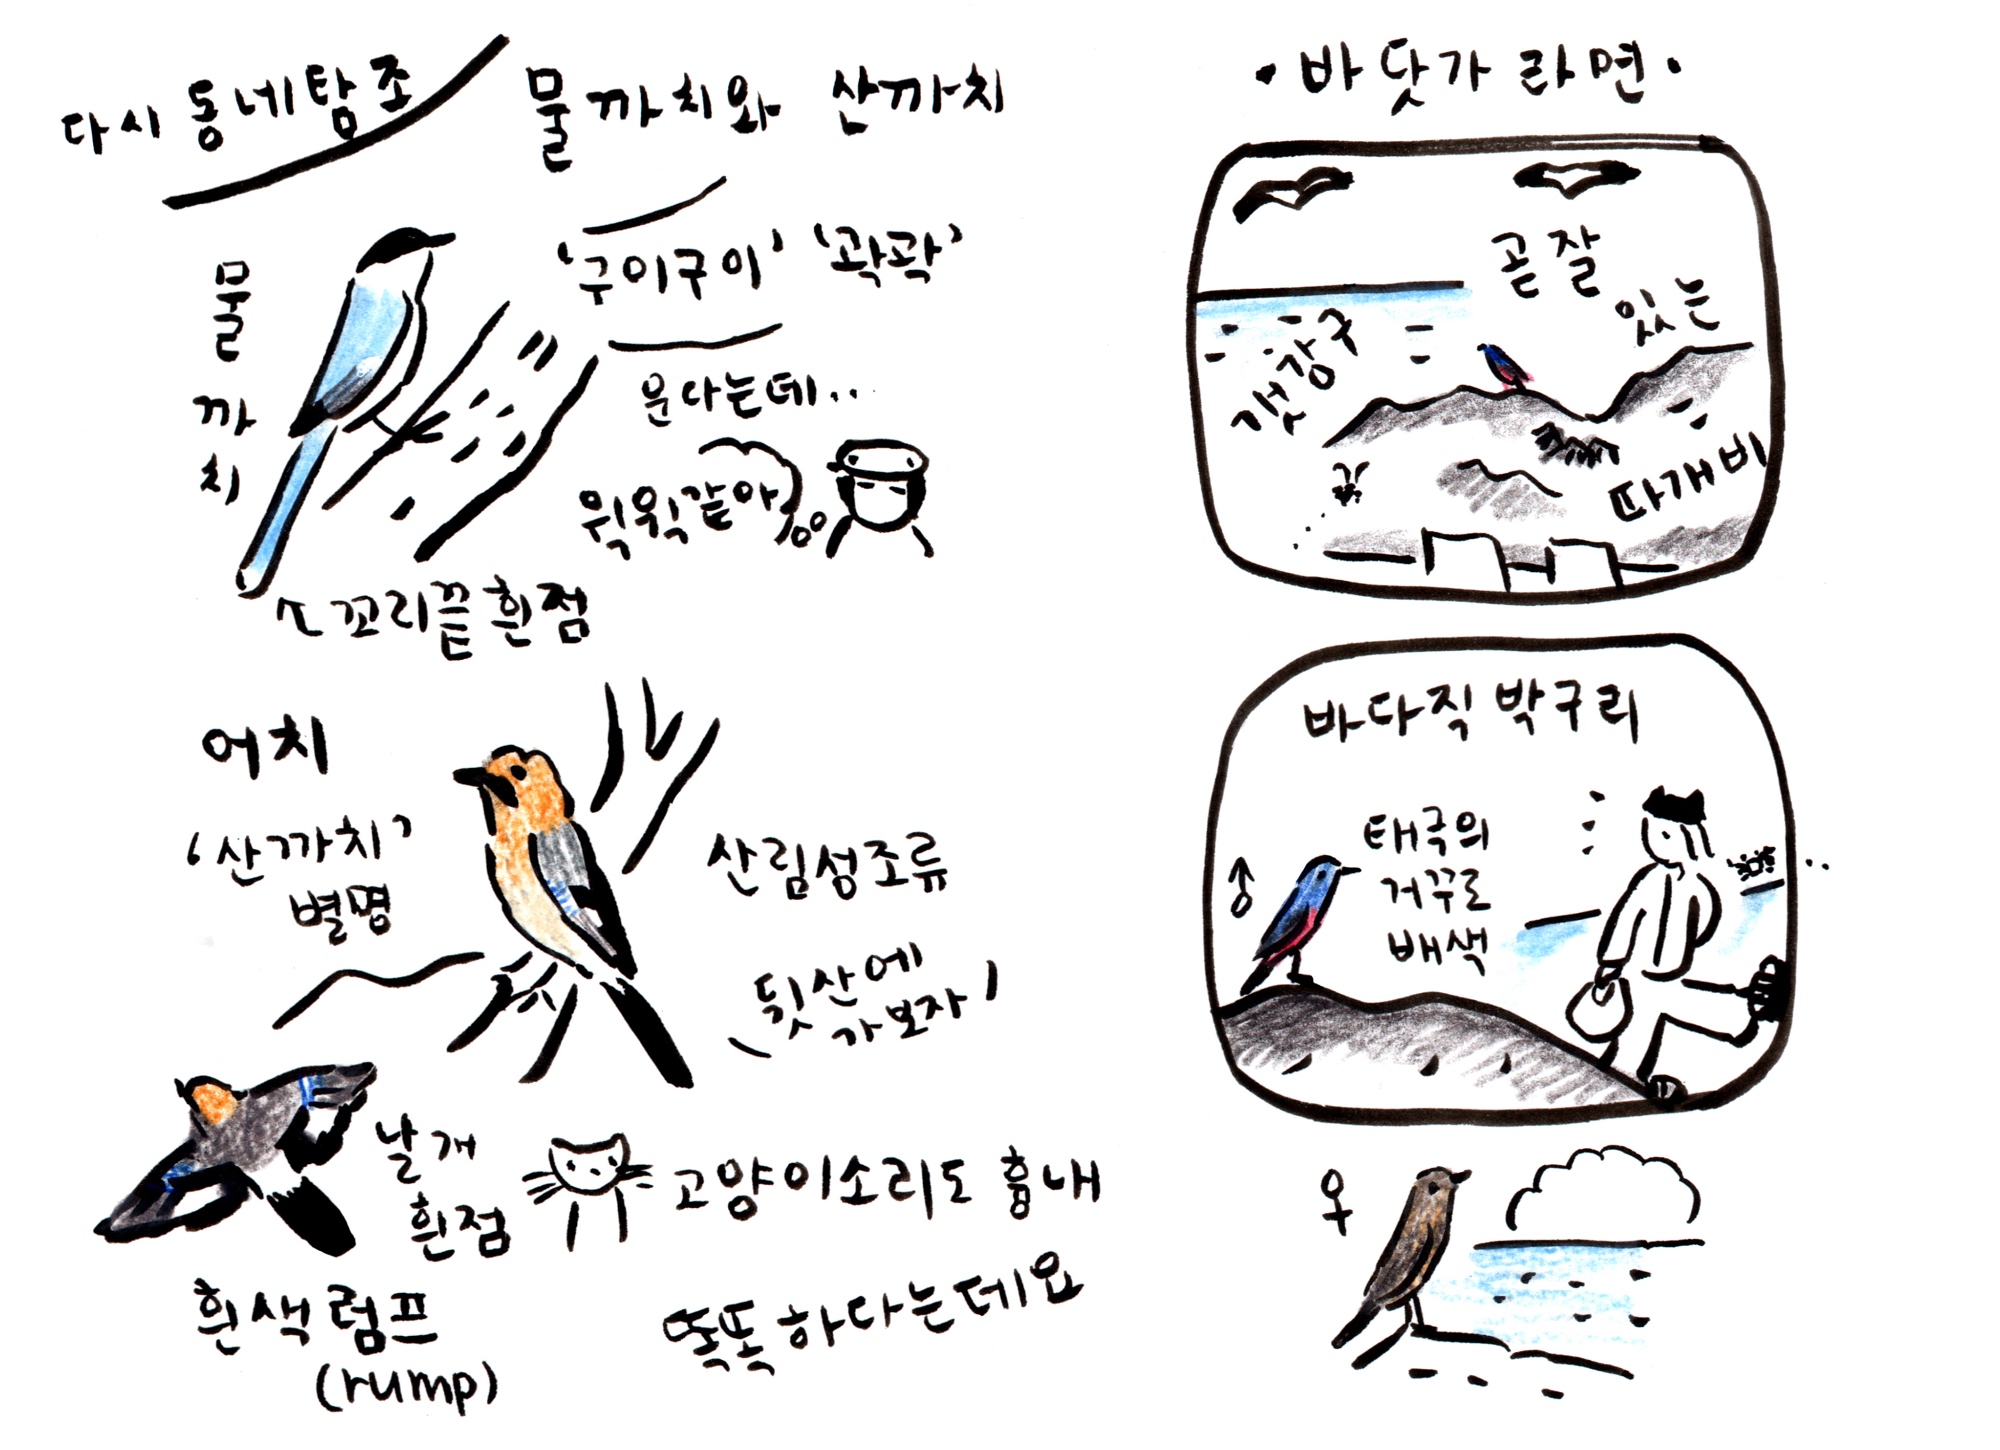 다시 동네탐조
물까치와 산까치
물까치
'구이구이' '곽곽'
운다는데..
웍웍같아
꼬리끝 흰점
어치
'산까치'
별명
산림성조류
뒷산에
가보자
날개
흰점
흰색 럼프
(rump)
고양이소리도 흉내
똑똑하다는데요
·바닷가 라면·
곧잘
있는
갯강구
따개비
바다직박구리
♂
태극의
거꾸로
배색
♀